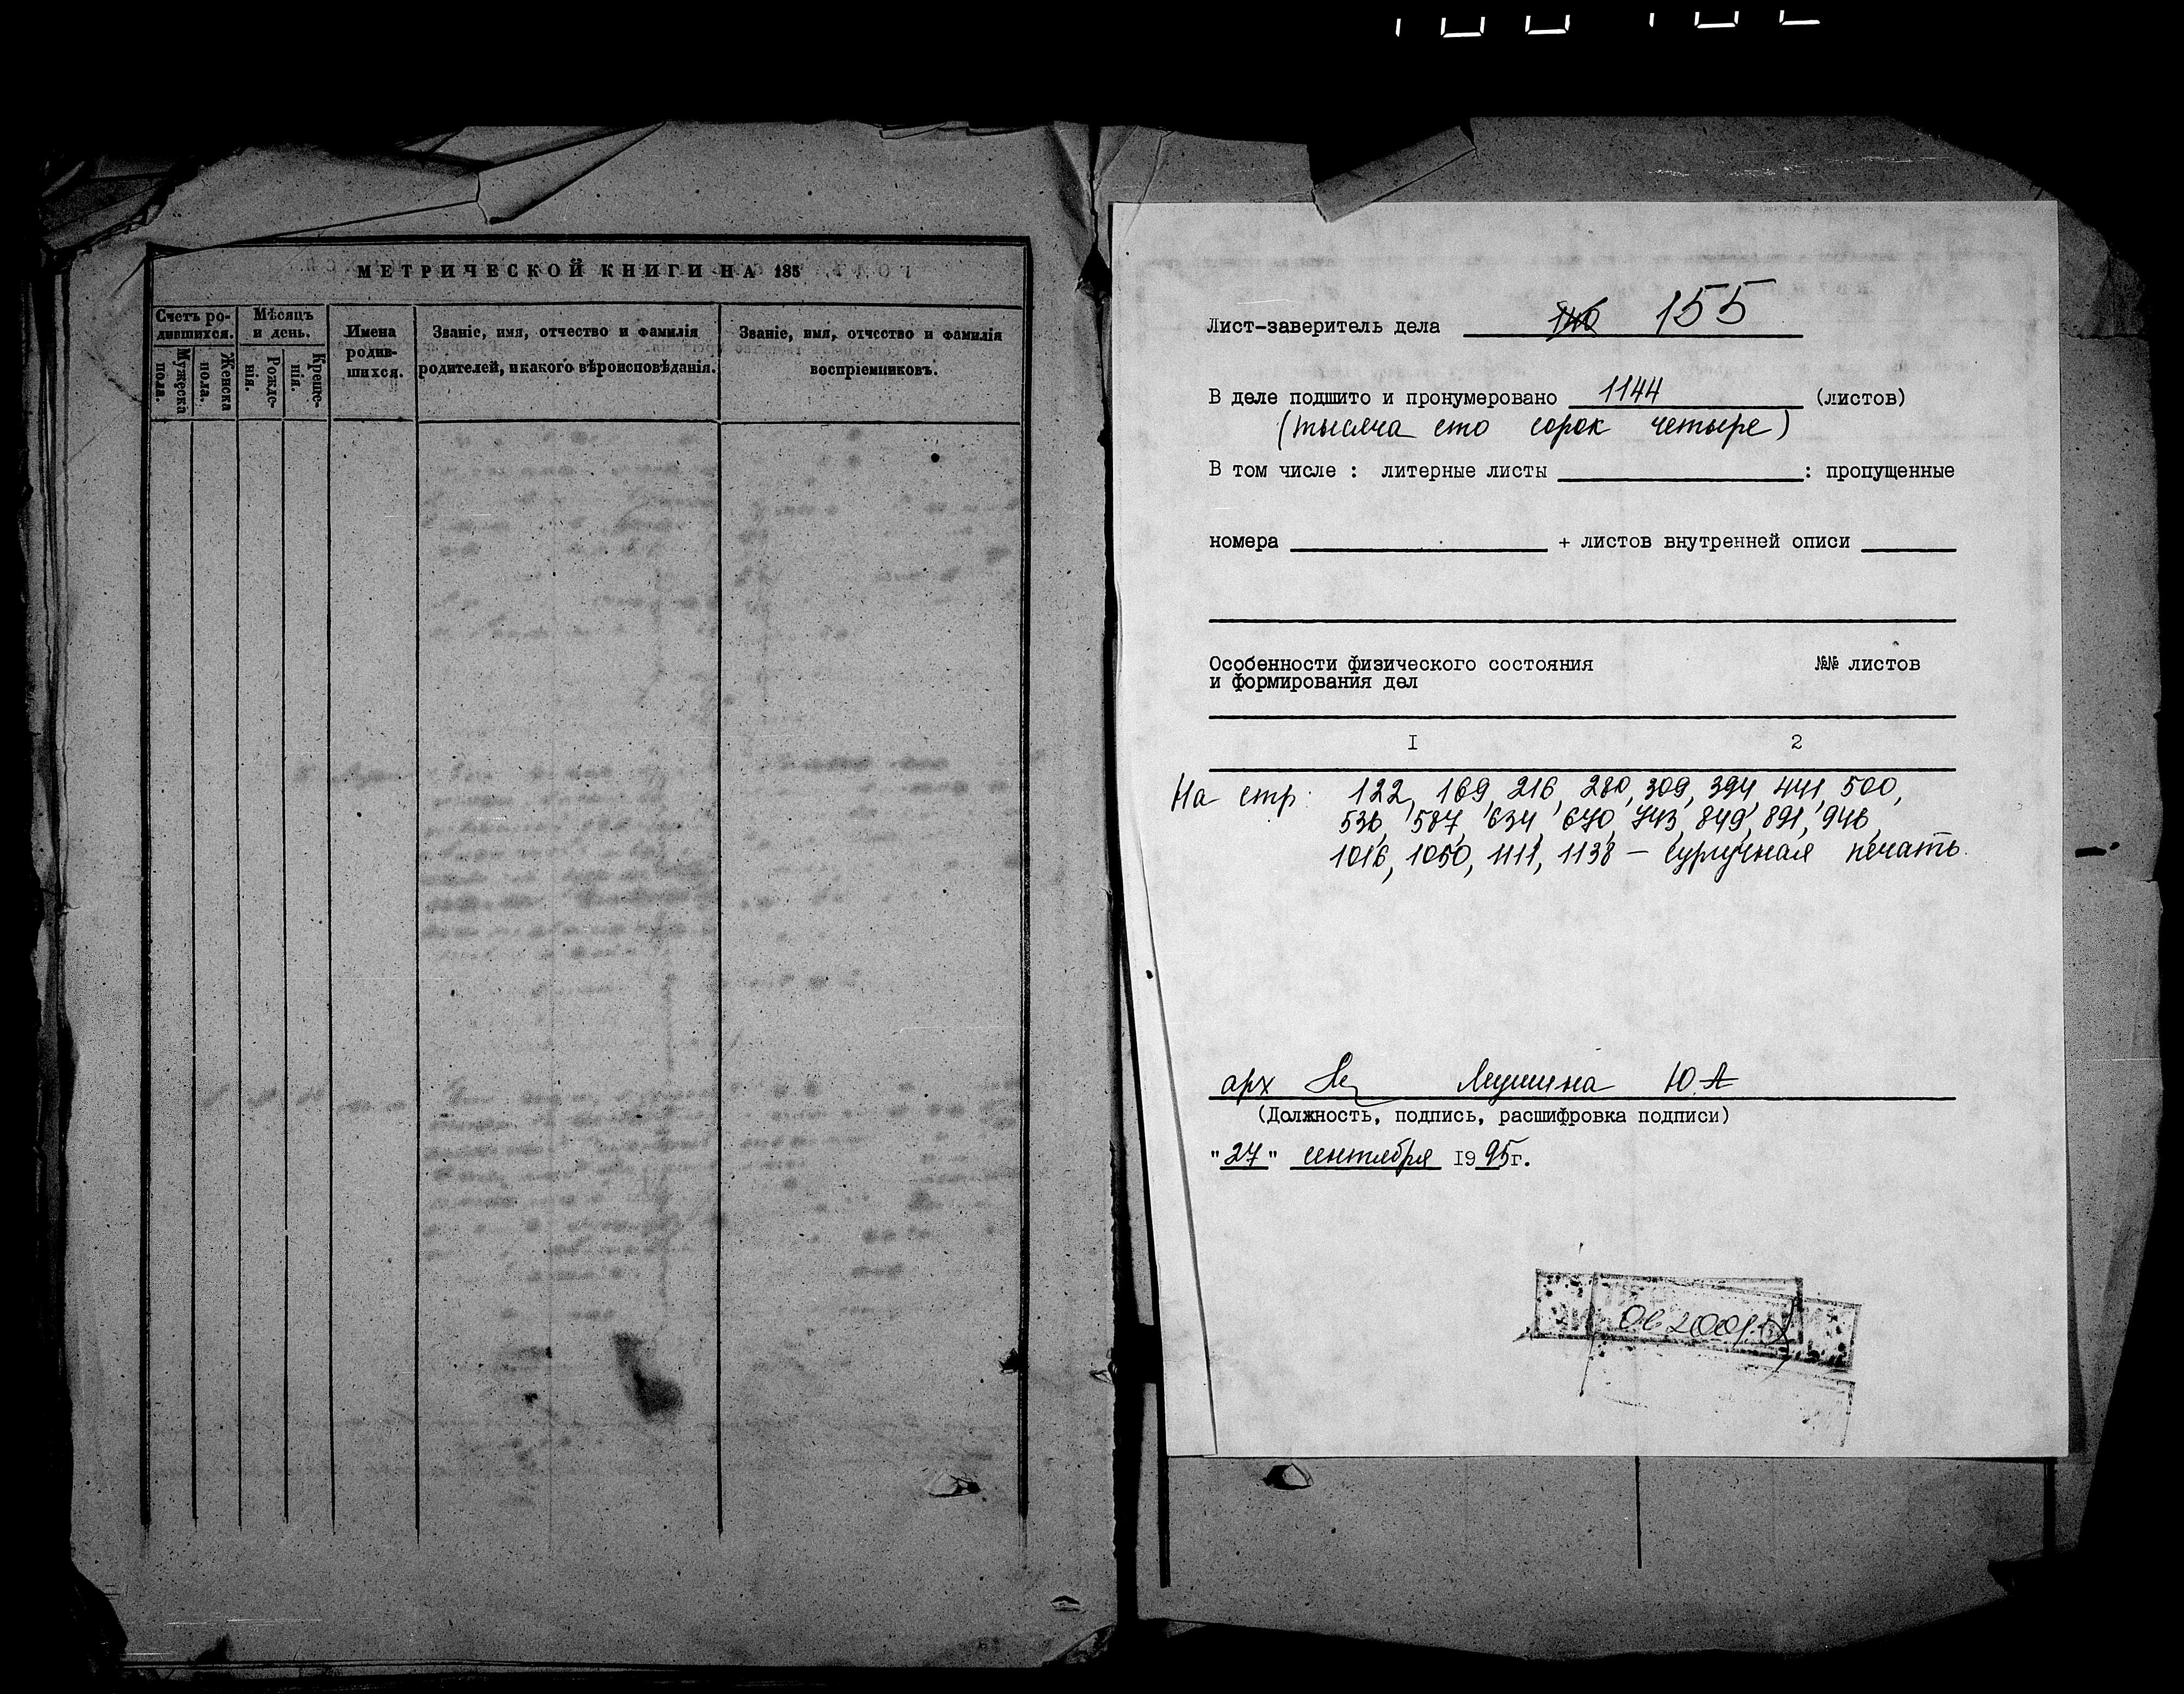 МЕТРИЧЕСКОЙ КНИГИ НА 185
Счетъ ро-
дившихся.
Мужеска
пола.
Женска
пола.
Мѣсяцъ
и день.
Рожде-
нія.
Креще-
нія.
Имена
родив-
шихся.
Званіе, имя, отчество и фамилія
родителей, и какого вѣроисповѣданія.
Званіе, имя, отчество и фамилія
воспріемниковъ.
Лист-заверитель дела 155
В деле подшито и пронумеровано 1144 (листов)
(тысяча сто сорок четыре)
В том числе : литерные листы : пропущенные
номера + листов внутренней описи
Особенности физического состояния №№ листов
и формирования дел
I 2
На стр. 122, 169, 216, 280, 309, 394, 441, 500,
536, 587, 634, 670, 743, 849, 891, 946,
1016, 1050, 1111, 1138 – сургучная печать.
арх Ю.А
(Должность, подпись, расшифровка подписи)
"27" сентября 1995г.